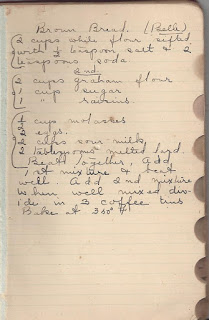 Brown Bread. (Belle)
2 cups white flour sifted
with 1/2 teaspoon salt & 2
teaspoons soda.
2nd
2 cups graham flour
1 cup sugar
1 " raisins.
1 cup molasses
2 eggs.
2 cups sour milk
2 tablespoons melted lard.
Beat together, Add
1st mixture & beat
well. Add 2nd mixture
When well mixed div-
ide in 3 coffee tins
Bake at 350° F